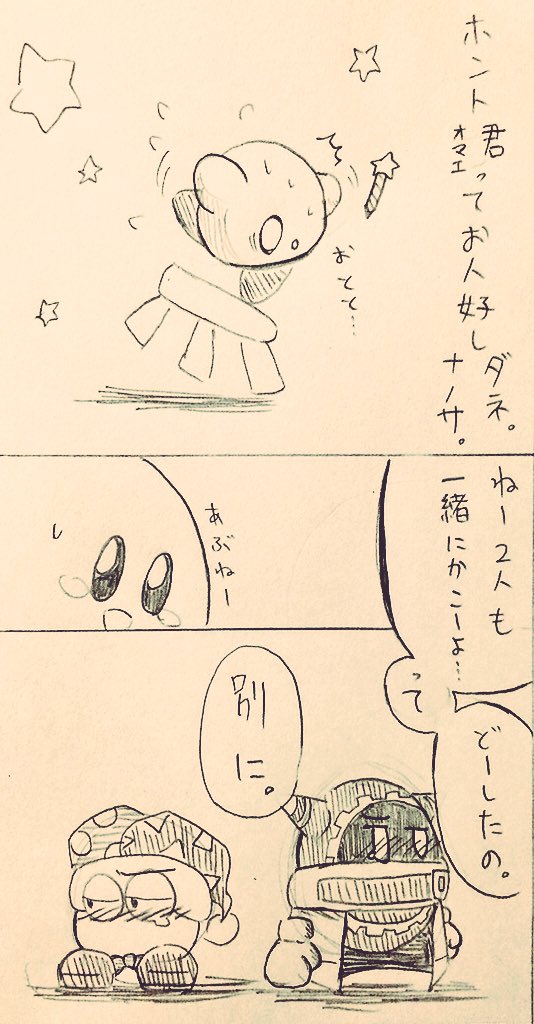 ホント君ってお人好しダネ。
オマエ
ナノサ。
おとと…
ねー2人も
一緒にかこーよ…
あぶねー
って
どーしたの。
別に。